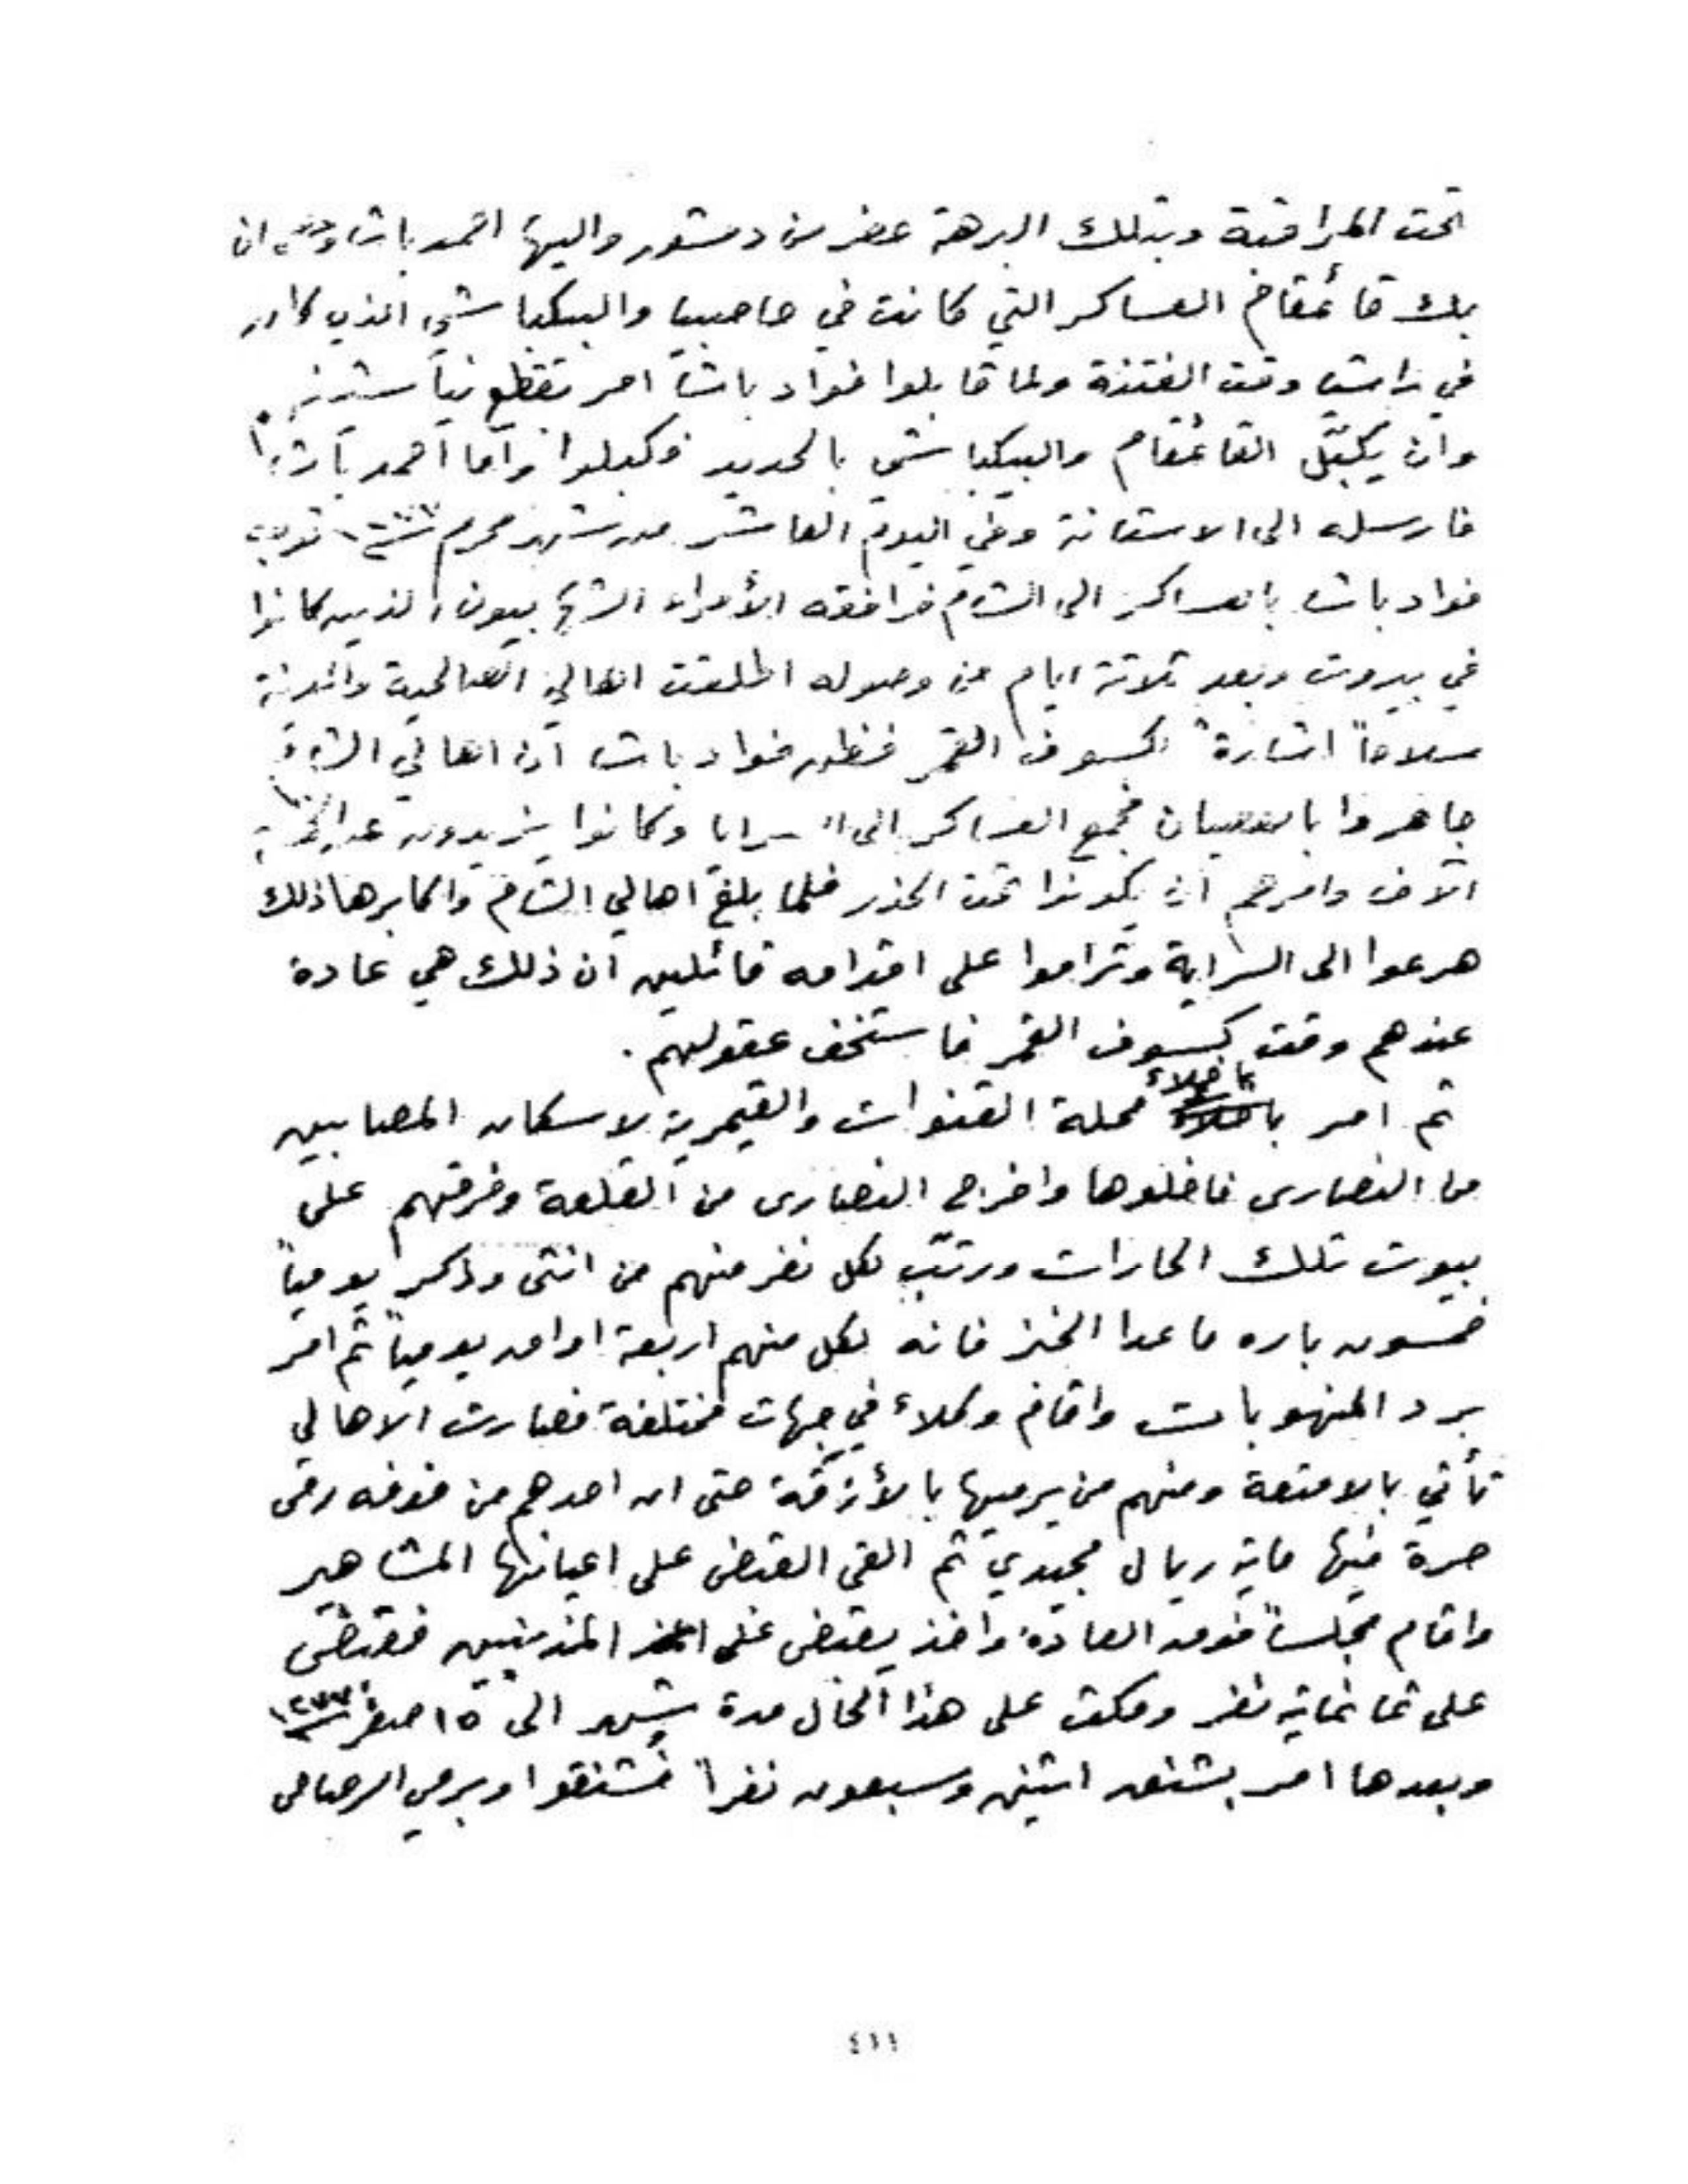 تحت المراقبة وبتلك البرهة حضر من دمشق واليها احمد باشا وعثمان
بك قائمقام العساكر التي كانت في حاصبيا والبيكباشي الذي كان
في راشيا وقت الفتنة ولما قابلوا فواد باشا امر بقطع
وان يكبّل القائمقام والبيكباشي بالحديد فكبلوا واما احمد باشا
فارسله الى الاستانة وفي اليوم العاشر من شهر محرم توجه
فواد باشا بالعساكر الى الشام فرافقه الأمراء الشهابيون الذين كانوا
في بيروت وبعد ثلاثة ايام من وصوله اطلقت اهالي الصالحية والمدينة
سلاحاً اشارة لكسوف القمر فظن فواد باشا ان اهالي الشام
جاهروا بالعصيان فجمع العساكر الى السرايا وكانوا يزيدون عن
آلاف وامرهم ان يكونوا تحت الحذر فلما بلغ اهالي الشام واكابرها ذلك
هرعوا الى السراية وتراموا على اقدامه قائلين ان ذلك هي عادة
عندهم وقت كسوف القمر فاستخف عقولهم .
ثم امر باخلاء محلة القنوات والقيمرية لاسكان المصابين
من النصارى فاخلوها واخرج النصارى من القلعة وفرقهم على
بيوت تلك الحارات ورتّب لكل نفر منهم من انثى وذكر يومياً
خمسون باره ما عدا الخبز فانه لكل منهم اربعة اواق يومياً ثم امر
برد المنهوبات واقام وكلاء في جهات مختلفة فصارت الاهالي
تأتي بالامتعة ومنهم من يرميها بالأزقّة حتى ان احدهم من خوفه رمى
صرة فيها ماية ريال مجيدي ثم القى القبض على اعيانها المشاهير
واقام مجلساً فوق العادة واخذ يقبض على المذنبين فقبض
على ثمانماية نفر ومكث على هذا الحال مدة شهر الى ١٥ صفر ١٢٧٧
وبعدها امر بشنق اثنين وسبعون نفراً فشنقوا وبرمي الرصاص
٤١١